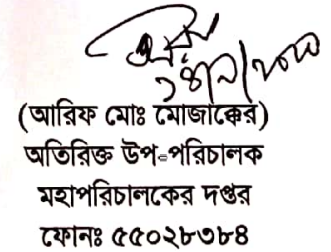 (আরিফ মোঃ মোজাক্কের)
অতিরিক্ত উপ-পরিচালক
মহাপরিচালকের দপ্তর
ফোনঃ ৫৫০২৮৩৮৪